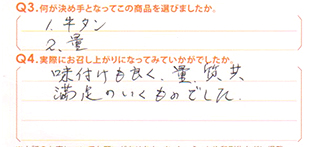 Q3.何が決め手となってこの商品を選びましたか。
1.牛タン
2、量
Q4.実際にお召し上がりになってみていかがでしたか。
味付けも良く、量、質、共
満足のいくものでした。